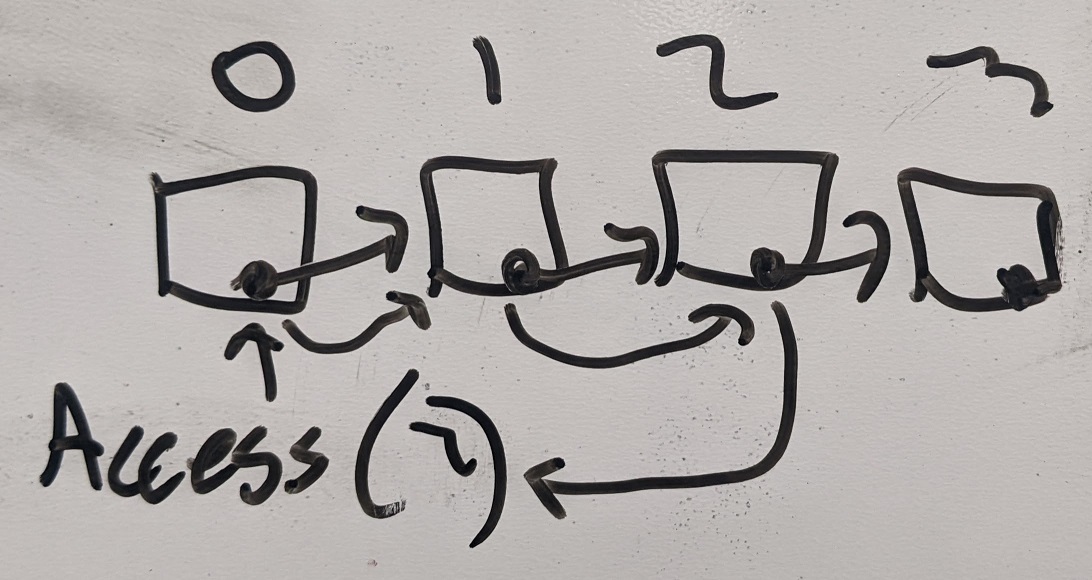 0 1 2 3
Access (2)